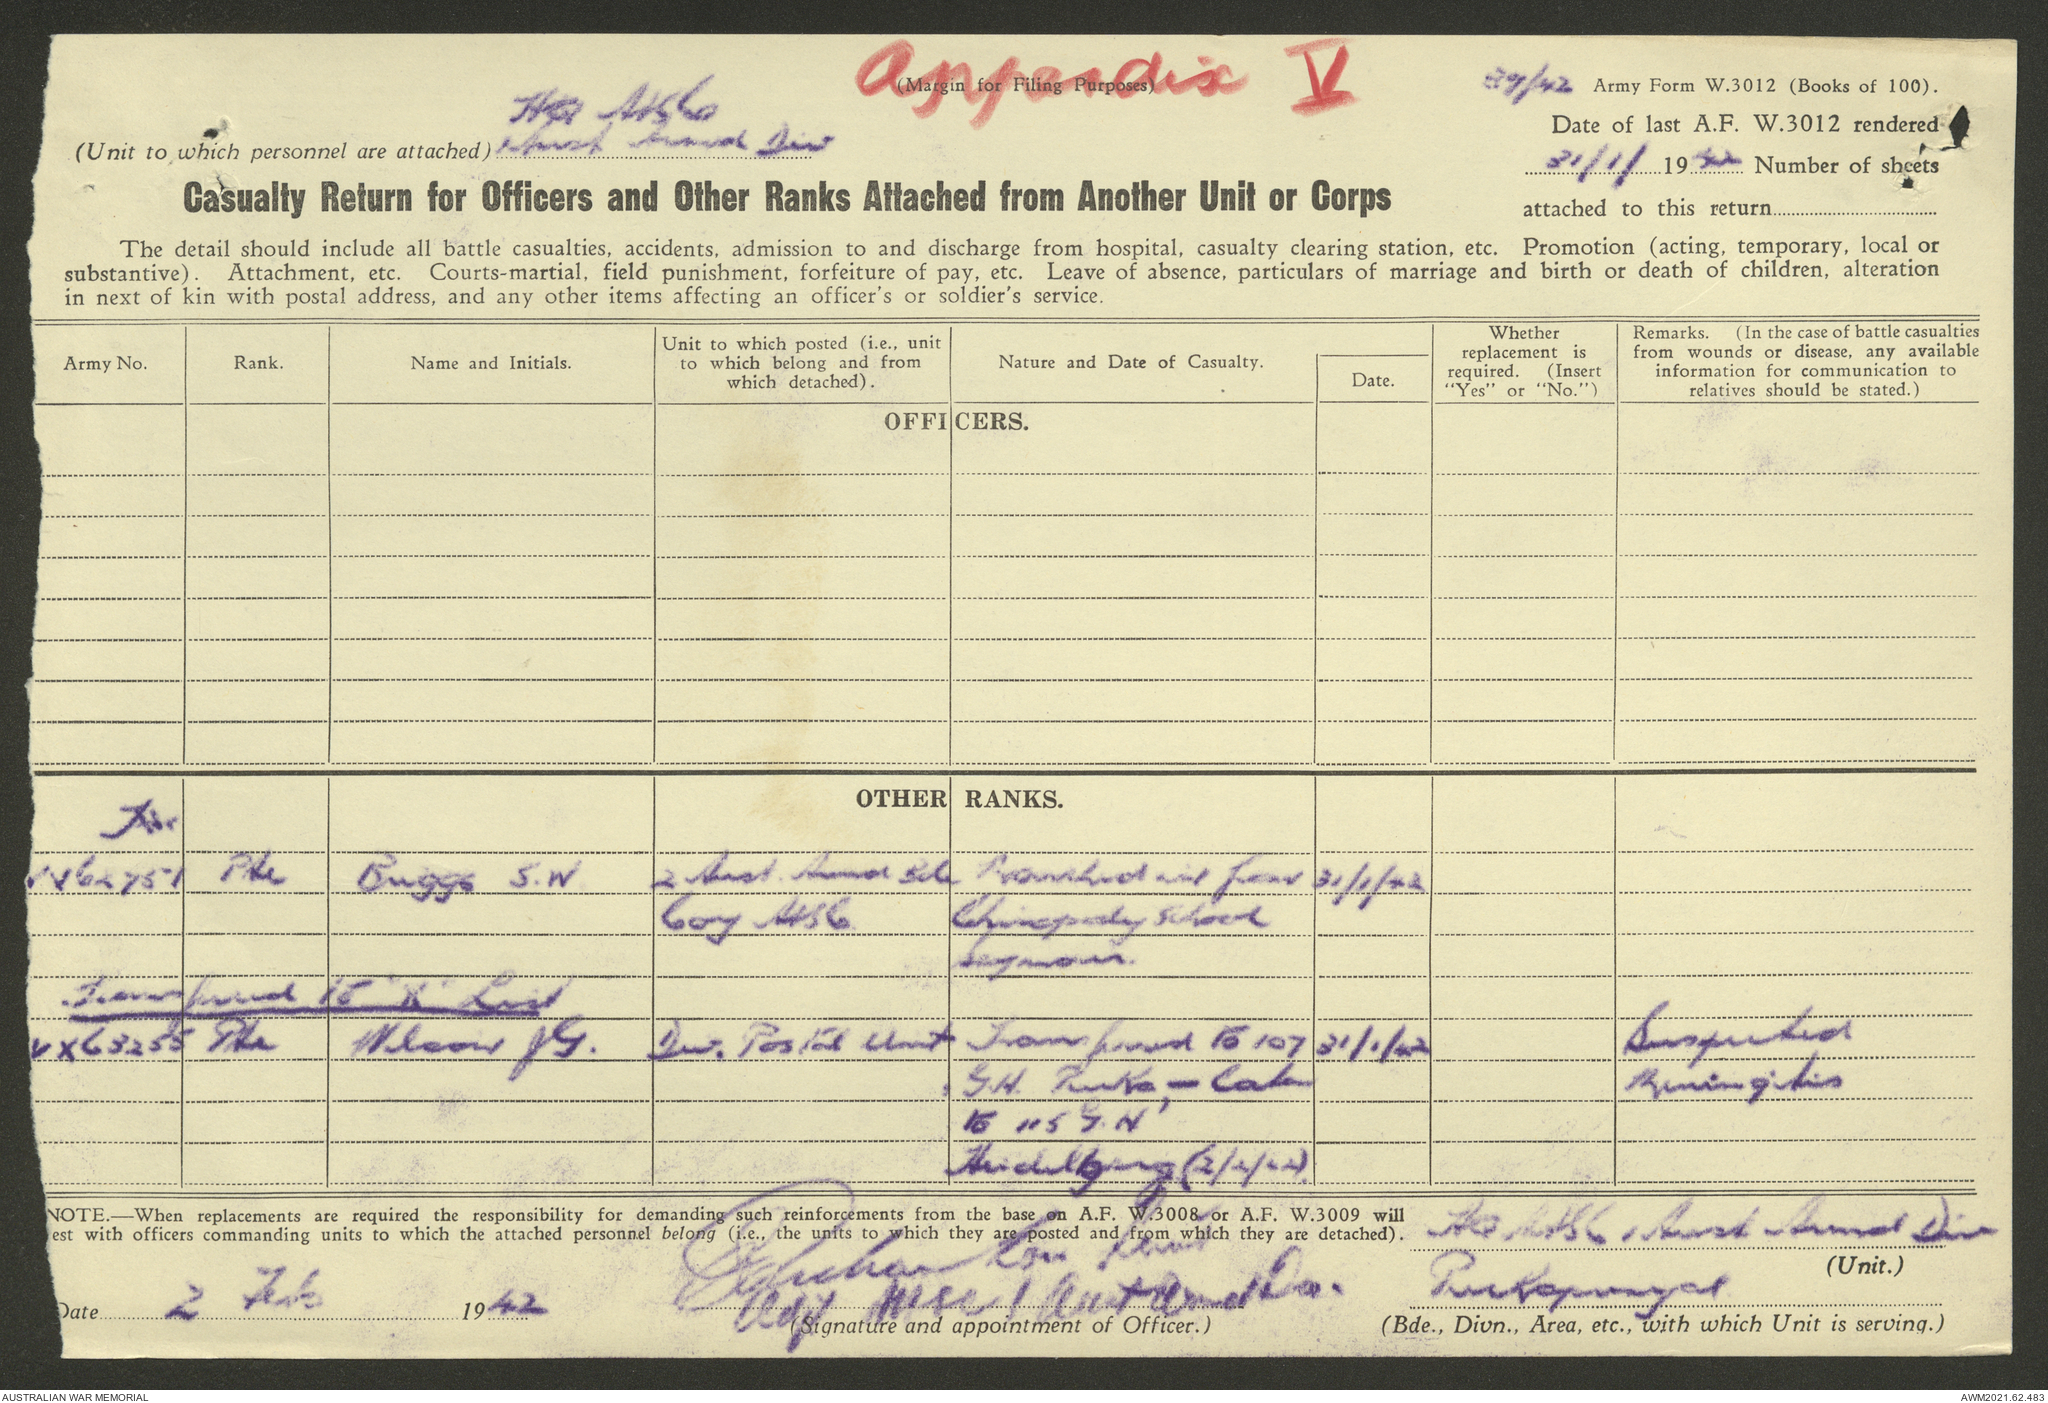 Appendix V
(Margin for Filing Purposes)
39/42 Army Form W.3012 (Books of 100).
HQ AASC
(Unit to which personnel are attached) 1 Aust Armd Div
Date of last A.F. W.3012 rendered
31/1/ 1942 Number of sheets
attached to this return
Casualty Return for Officers and Other Ranks Attached from Another Unit or Corps
The detail should include all battle casualties, accidents, admission to and discharge from hospital, casualty clearing station, etc. Promotion (acting, temporary, local or
substantive). Attachment, etc. Courts-martial, field punishment, forfeiture of pay, etc. Leave of absence, particulars of marriage and birth or death of children, alteration
in next of kin with postal address, and any other items affecting an officer's or soldier's service.
Army No.
Rank.
Name and Initials.
Unit to which posted (i.e., unit
to which belong and from
which detached).
Nature and Date of Casualty.
Date.
Whether
replacement is
required. (Insert
"Yes" or "No.")
Remarks. (In the case of battle casualties
from wounds or disease, any available
information for communication to
relatives should be stated.)
OFFICERS.
OTHER RANKS.
VX62751 Pte Buggs S.W 2 Aust. Armd Bde Marched in from 31/1/42
Coy AASC Chiropody School
Seymour.
Transferred to "X" List
VX63255 Pte Wilson J G. Div. Postal Unit Transferred to 107 31/1/42 Suspected
G.H. Pucka, — Later Meningitis
to 115 G.H
Heidelberg (2/2/42).
NOTE.—When replacements are required the responsibility for demanding such reinforcements from the base on A.F. W.3008 or A.F. W.3009 will
est with officers commanding units to which the attached personnel belong (i.e., the units to which they are posted and from which they are detached).
HQ AASC 1 Aust Armd Div
(Unit.)
Date 2 Feb 1942
Adjt AASC 1 Aust Armd Div.
(Signature and appointment of Officer.)
Puckapunyal
(Bde., Divn., Area, etc., with which Unit is serving.)
AUSTRALIAN WAR MEMORIAL
AWM2021.62.483